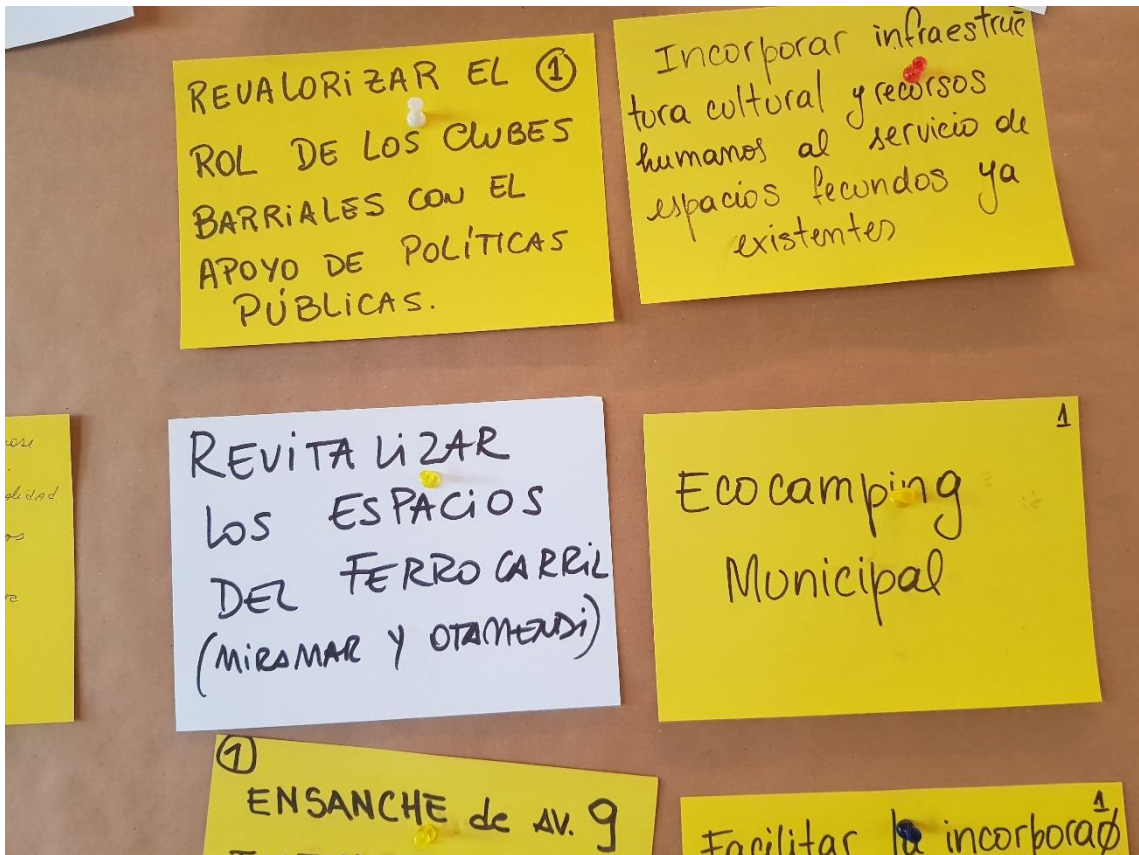 REVALORIZAR EL ①
ROL DE LOS CLUBES
BARRIALES CON EL
APOYO DE POLÍTICAS
PÚBLICAS.
Incorporar infraestruc
tura cultural y recursos
humanos al servicio de
espacios fecundos ya
existentes
REVITALIZAR
LOS ESPACIOS
DEL FERROCARRIL
(MIRAMAR Y OTAMENDI)
1
Ecocamping
Municipal
①
ENSANCHE de AV. 9
1
Facilitar la incorporac